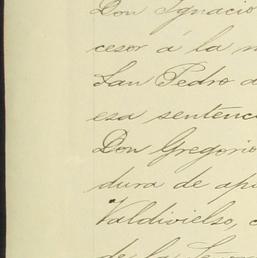 Don Ignacio
cesor á la
San Pedro
esa sentenc
Don Gregorio
dura de ap
Valdivielso,
de la Seño